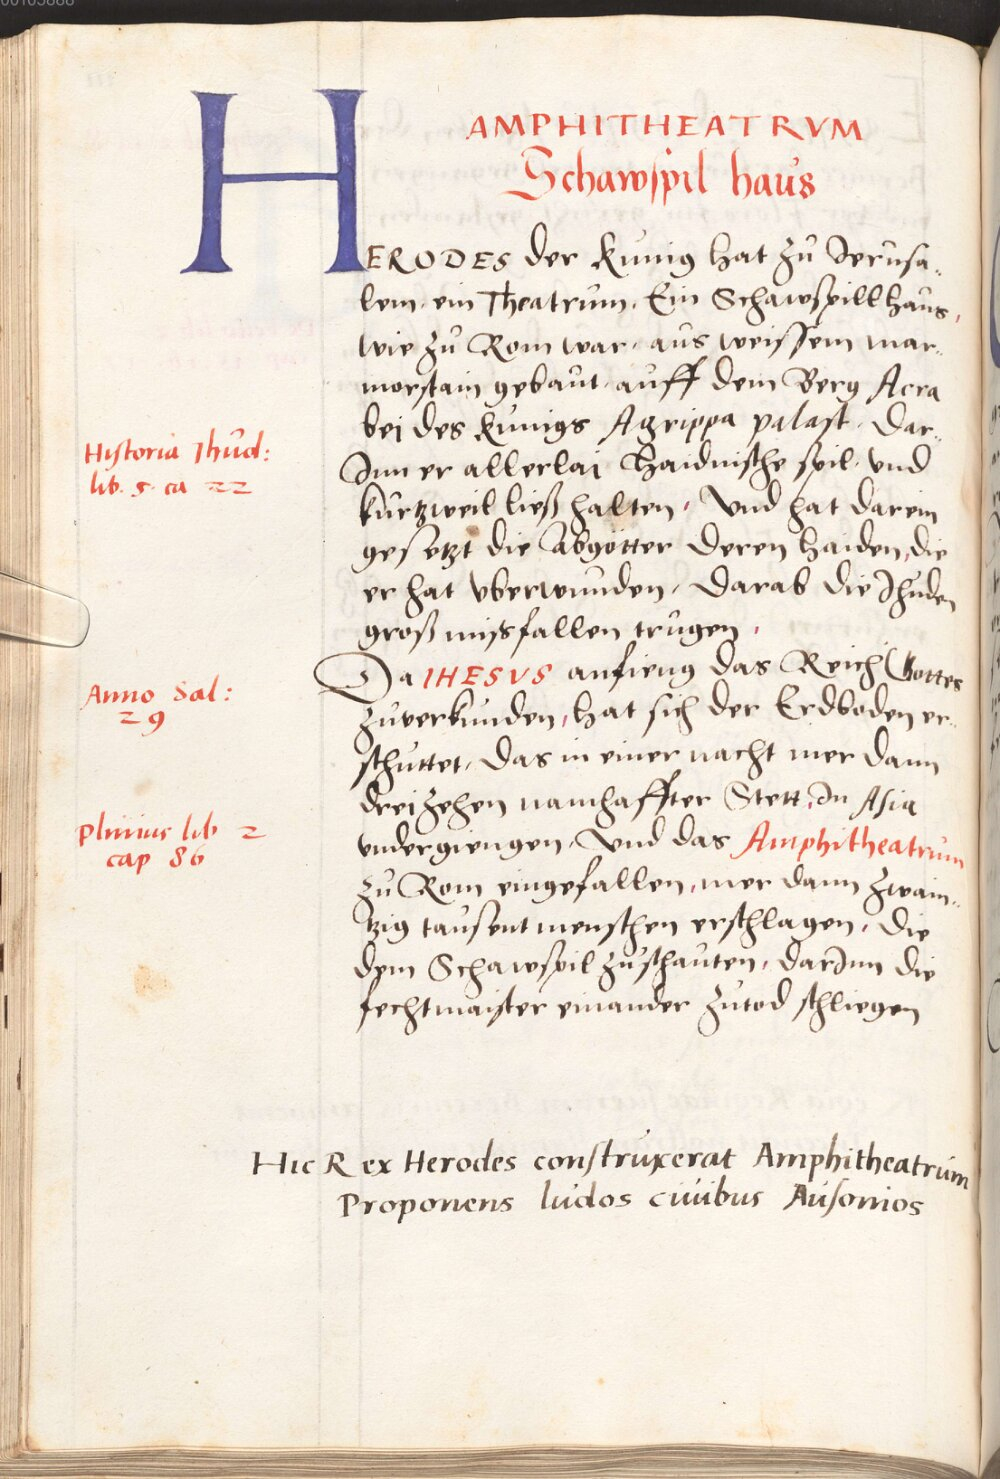 AMPHITHEATRVM
Schawspil haus
HERODES der Kunig hat zu Jerusa„
lem ein Theatrum. Ein Schawspillhaus,
wie zu Rom war, aus weissem mar„
morstain gebaut auff dem Berg Acra
bei des Kunigs Agrippa palast. Dar„
Jnn er allerlai Haidnische spil und
kurtzweil ließ halten, Und hat darein
gesetzt die Abgötter deren Haiden, die
er hat vberwunden, Darab die Jhuden
groß missfallen trugen.
Historia Jhud:
lib. 5. ca 22
Da IHESVS anfieng das Reich Gottes
zuverkunden, hat sich der Erdboden er„
schuttet, Das in einer nacht mer dann
dreizehen namhaffter Stett, Jn Asia
undergiengen, Und das Amphitheatrum
zu Rom eingefallen, mer dann zwain„
tzig tausent menschen erschlagen, die
dem Schawspil zuschauten, darJnn die
fechtmaister einander zutod schliegen
Anno Sal:
29
Plinius lib 2
cap 86
Hic Rex Herodes construxerat Amphitheatrum
Proponens ludos ciuibus Ausonios